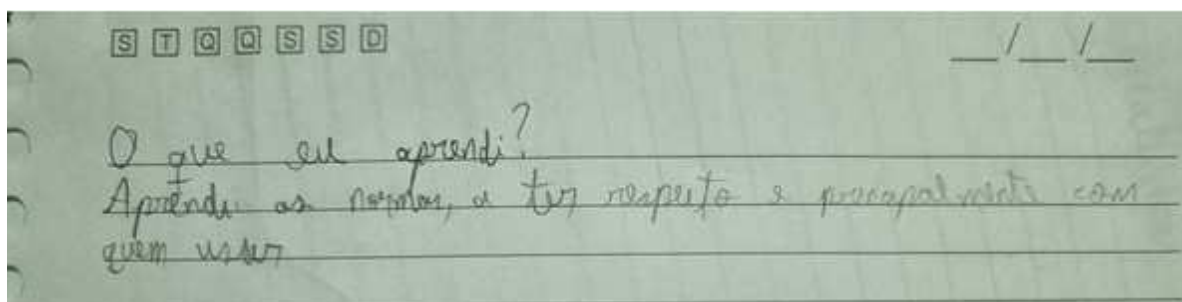 S T Q Q S S D __/__/__
O que eu aprendi?
Aprendi as normas, a ter respeito e principalmente com
quem